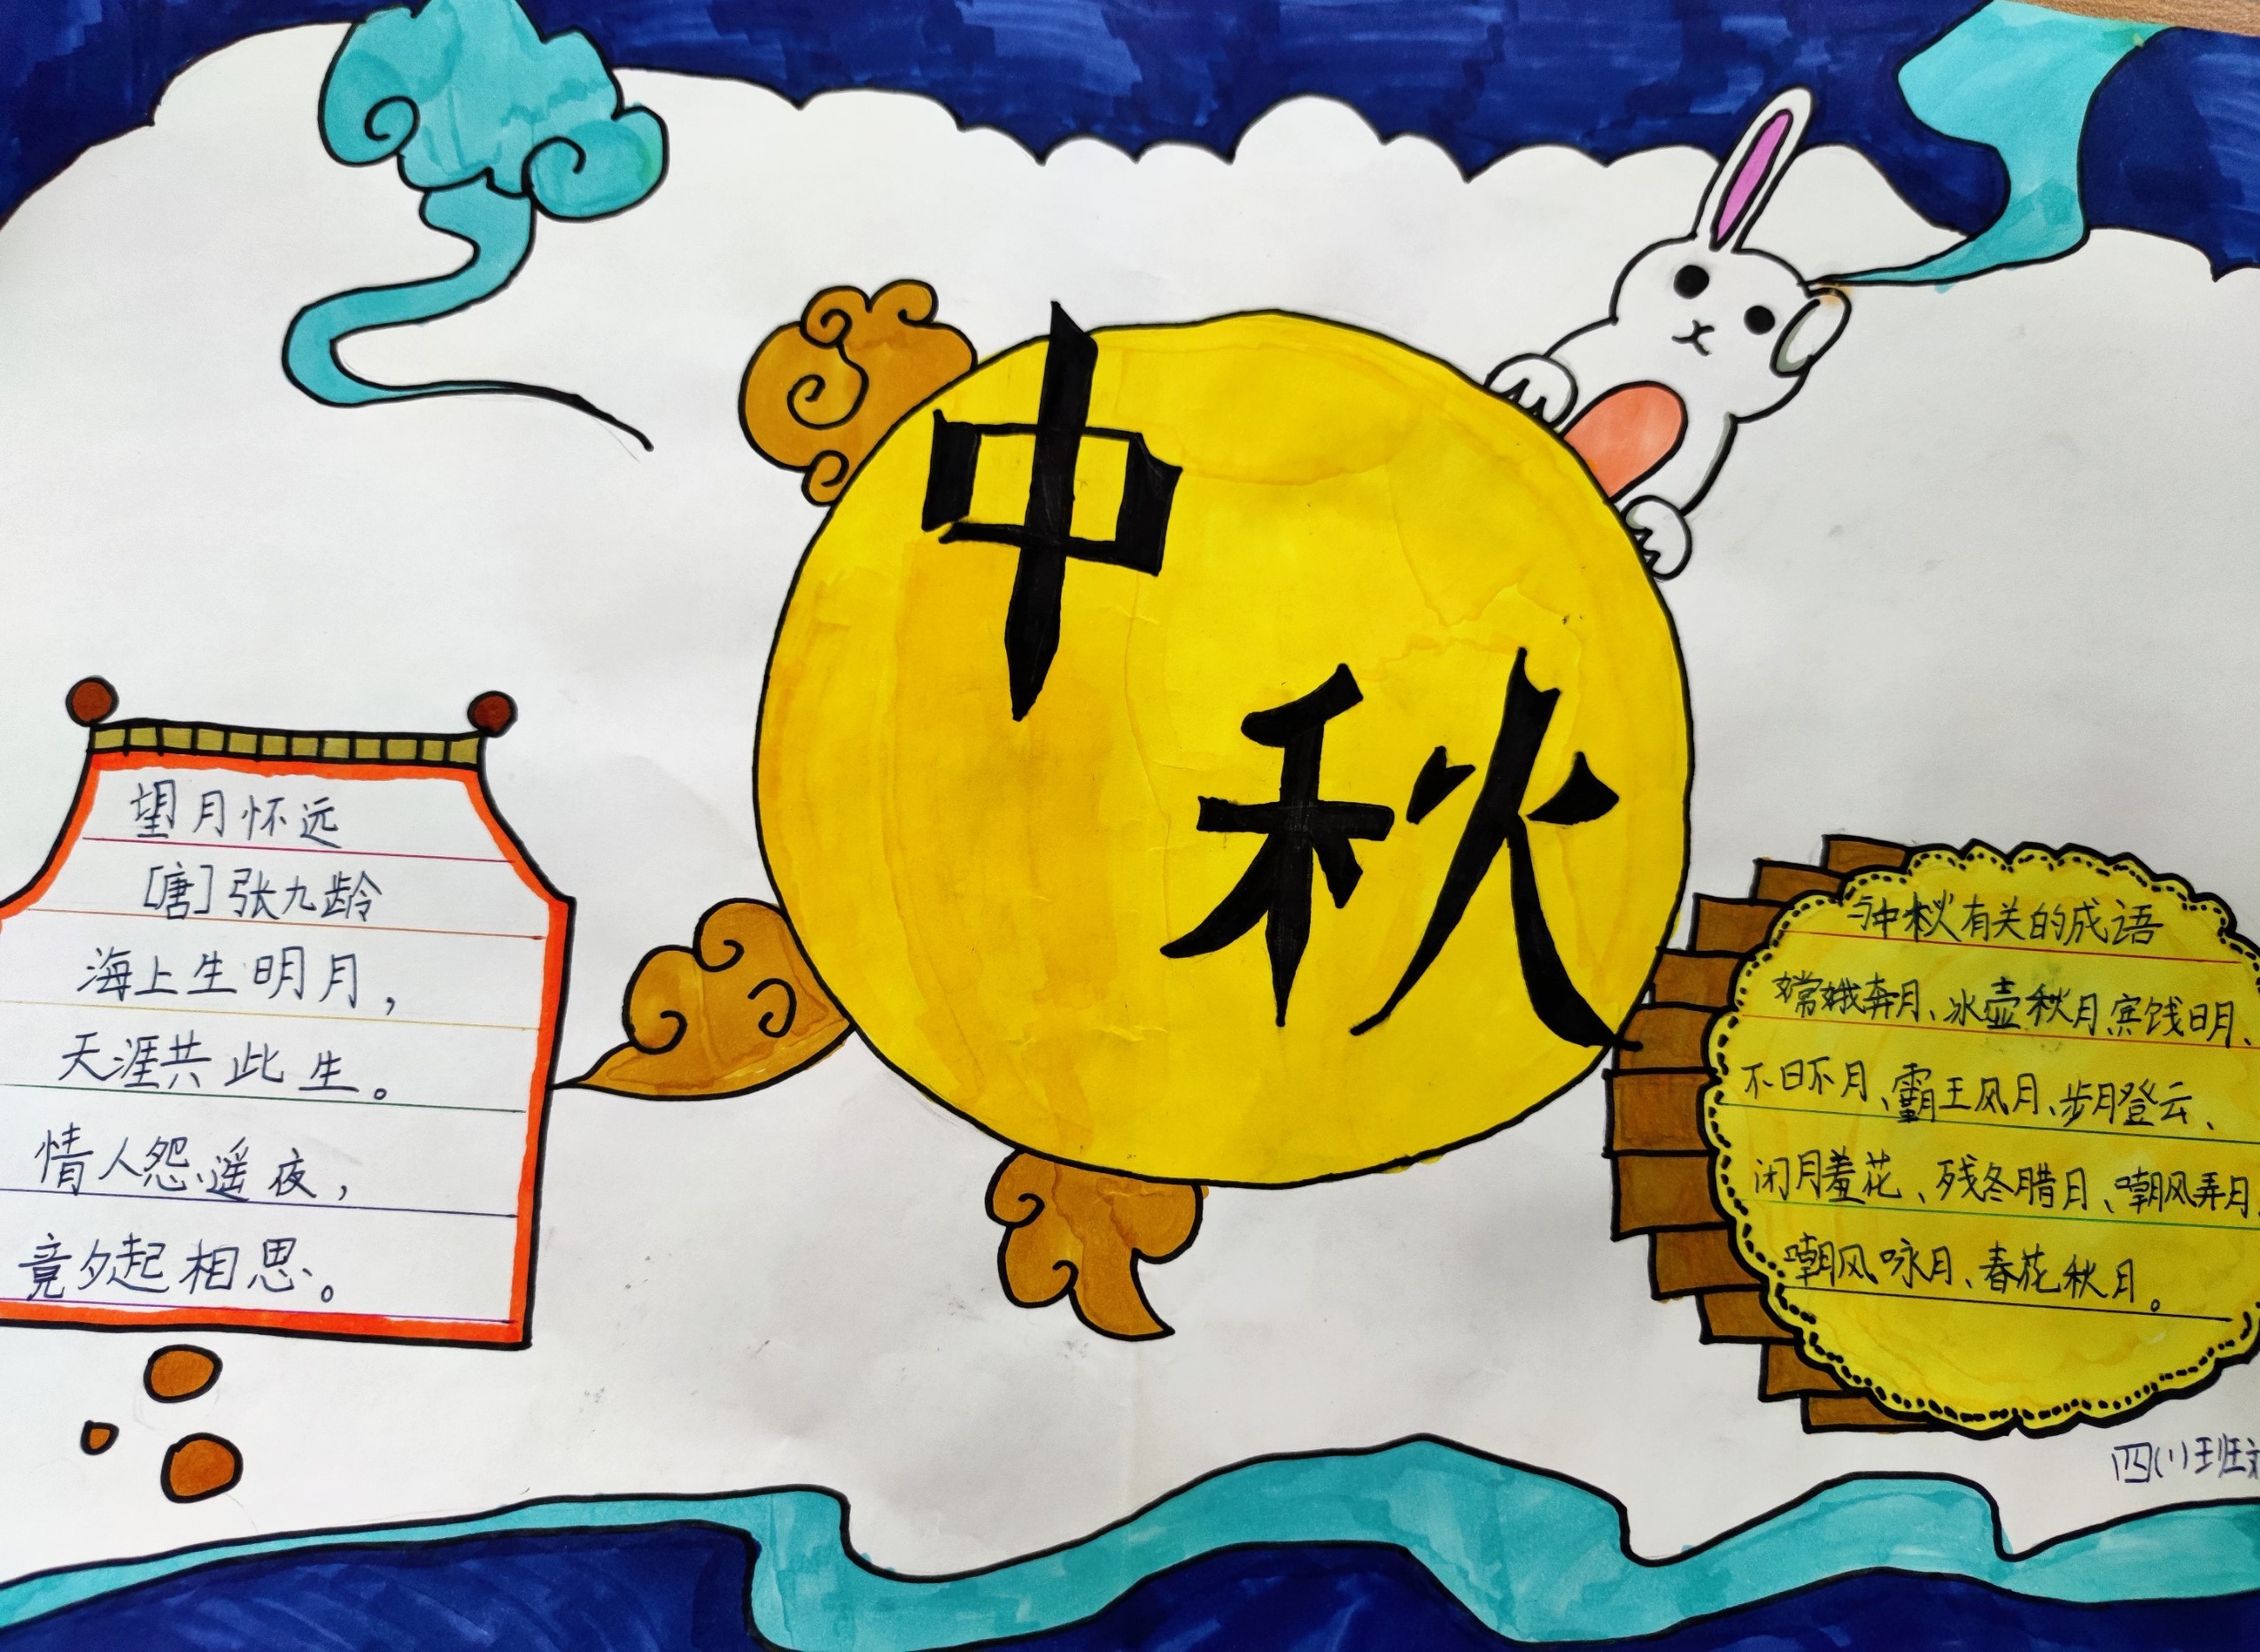 中
秋
望月怀远
[唐]张九龄
海上生明月，
天涯共此生。
情人怨遥夜，
竟夕起相思。
与中秋有关的成语
嫦娥奔月、冰壶秋月、寅饯明、
不日不月、霸王风月、步月登云、
闭月羞花、残冬腊月、嘲风弄月、
嘲风咏月、春花秋月。
四(1)班